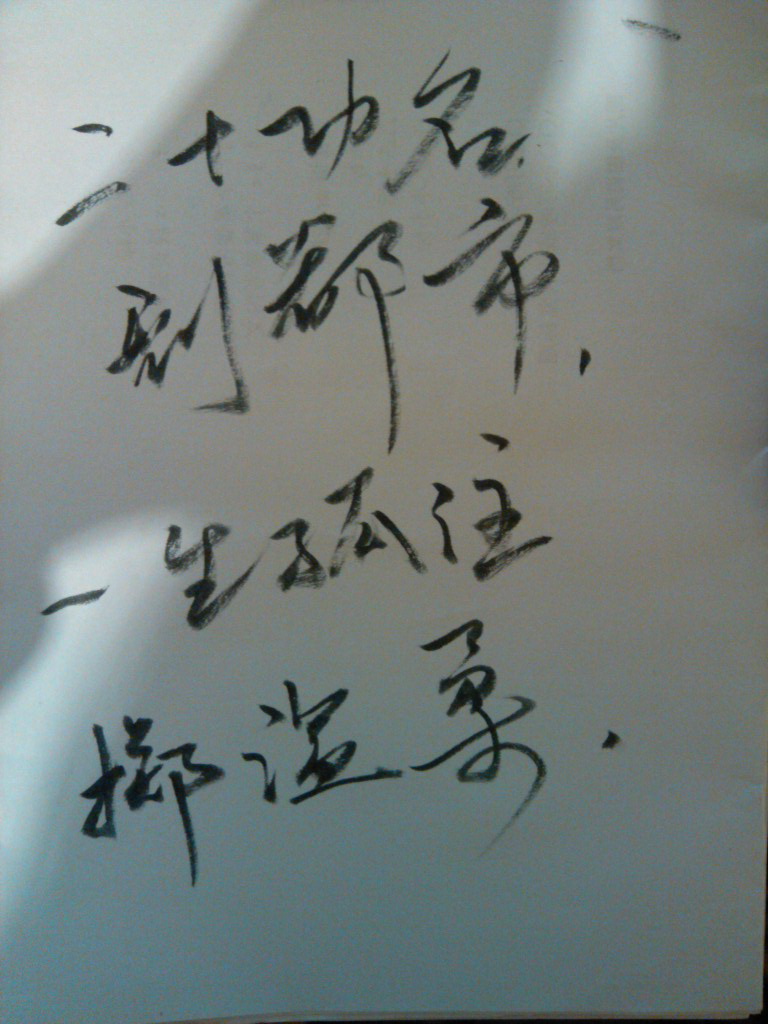 二十功名
到都市,
一生孤注
掷温柔.